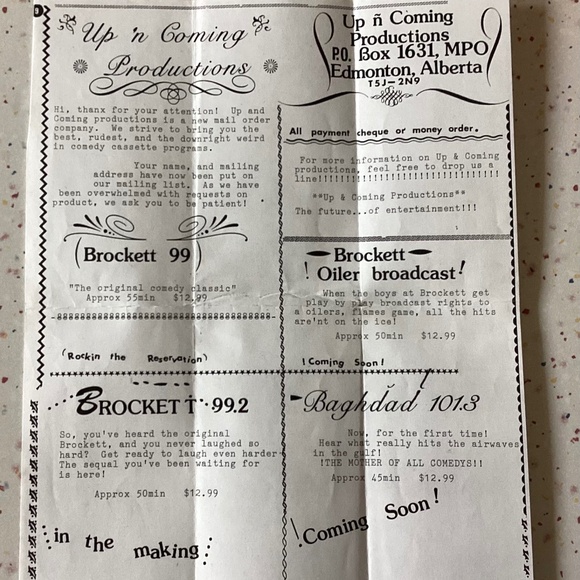 Up 'n Coming
Productions
Hi, thanx for your attention! Up and
Coming productions is a new mail order
company. We strive to bring you the
best, rudest, and the downright weird
in comedy cassette programs.
Your name, and mailing
address have now been put on
our mailing list. As we have
been overwhelmed with requests on
product, we ask you to be patient!
(Brockett 99)
"The original comedy classic"
Approx 55min $12.99
(Rockin the Reservation)
BROCKETT 99.2
So, you've heard the original
Brockett, and you never laughed so
hard? Get ready to laugh even harder
The sequal you've been waiting for
is here!
Approx 50min $12.99
in the making
Up ñ Coming
Productions
P.O. Box 1631, MPO
Edmonton, Alberta
T5J-2N9
All payment cheque or money order.
For more information on Up & Coming
productions, feel free to drop us a
line!!!!!!!!!!!!!!!!!!!!!!!!!!!!!!!
**Up & Coming Productions**
The future...of entertainment!!!
Brockett
! Oiler broadcast!
When the boys at Brockett get
play by play broadcast rights to
a oilers, flames game, all the hits
are'nt on the ice!
Approx 50min $12.99
!Coming Soon!
Baghdad 101.3
Now, for the first time!
Hear what really hits the airwaves
in the gulf!
!THE MOTHER OF ALL COMEDYS!!
Approx 45min $12.99
!Coming Soon!